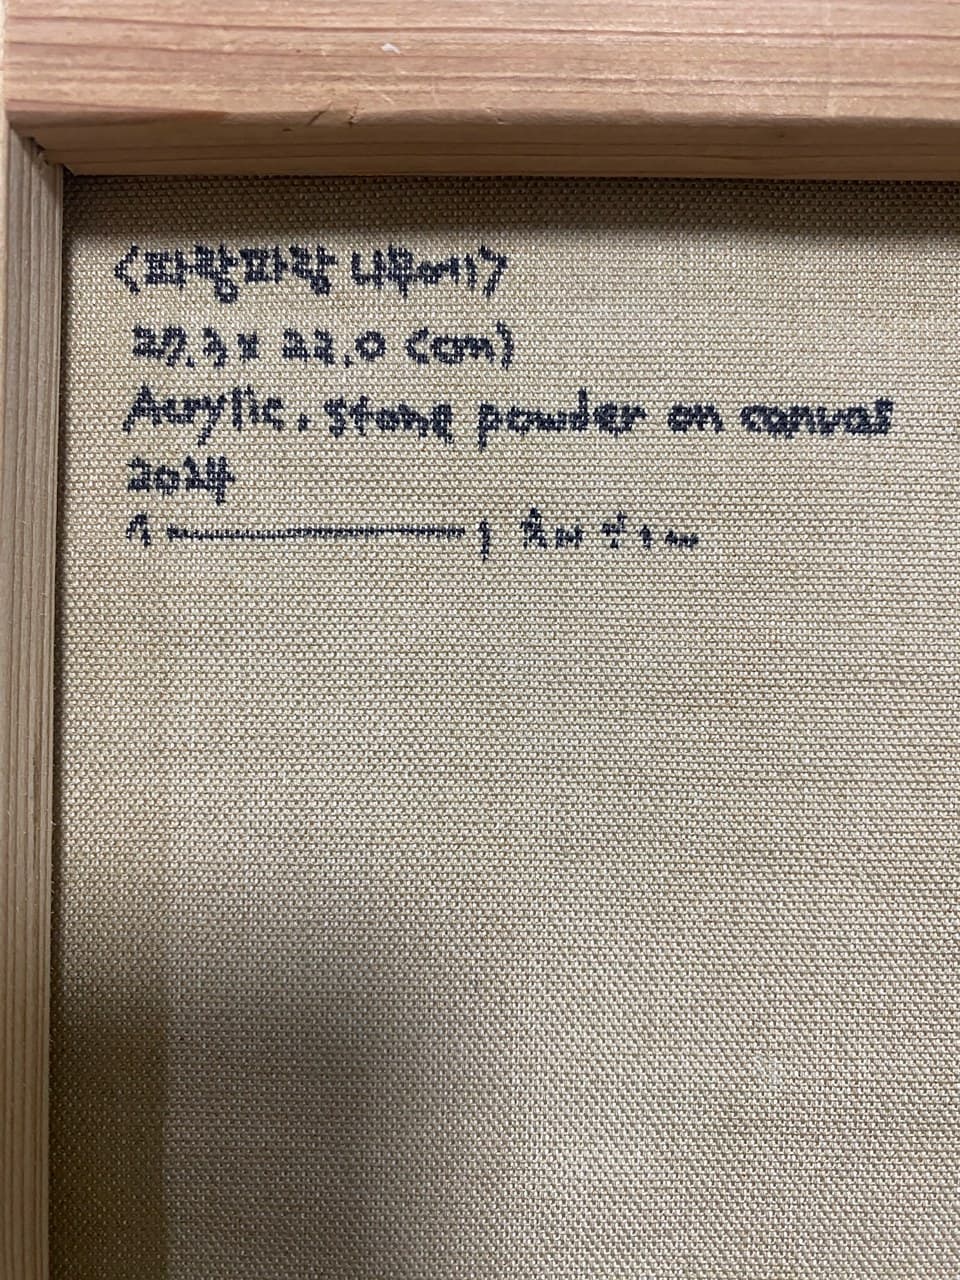 <파랑파랑 나무에1>
27.3 x 22.0 (cm)
Acrylic, stone powder on canvas
2024